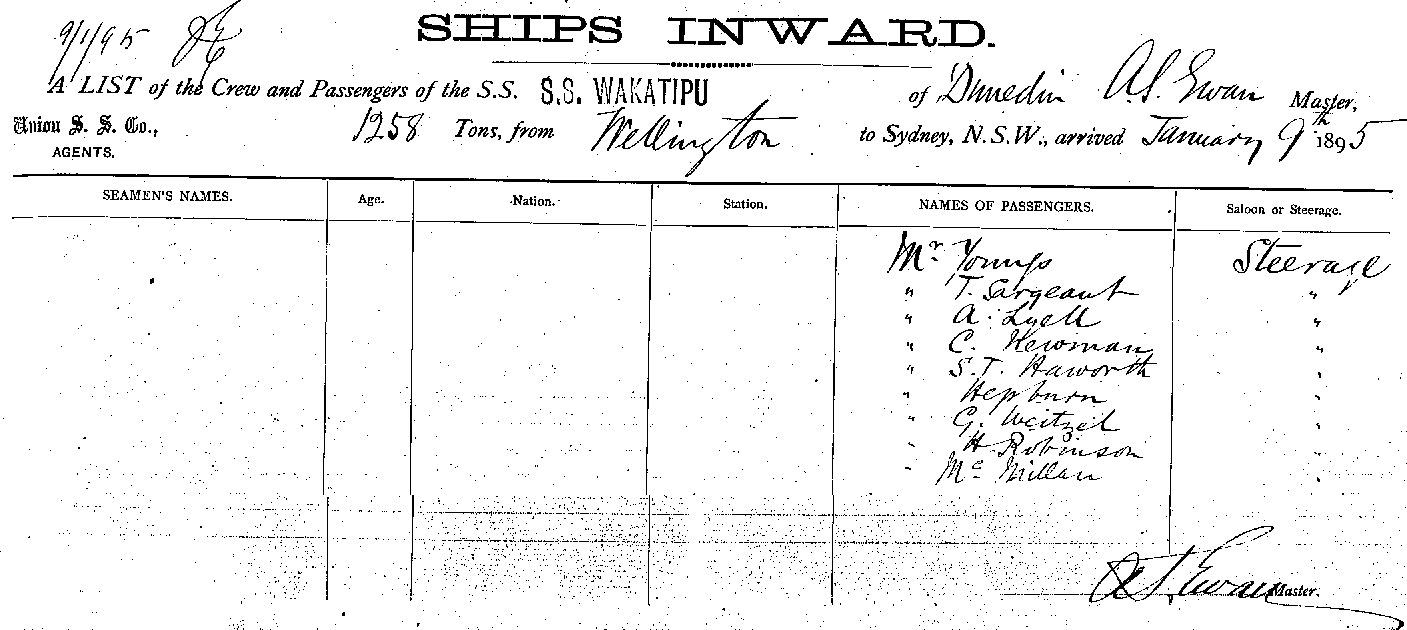 SHIPS INWARD.
9/1/95
A LIST of the Crew and Passengers of the S.S. S.S. WAKATIPU of Dunedin A.S. Ewan Master,
Union S. S. Co., 1258 Tons, from Wellington to Sydney, N.S.W., arrived January 9th 1895
AGENTS.
SEAMEN'S NAMES. Age. Nation. Station. NAMES OF PASSENGERS. Saloon or Steerage.
Mr. Youngs Steerage
" T. Sargeant "
" A. Lyell "
" C. Newman "
" S.T. Haworth "
" Hepburn "
" G. Weitzel "
" H Robinson "
" Mc Millan "
A S. Ewan Master.